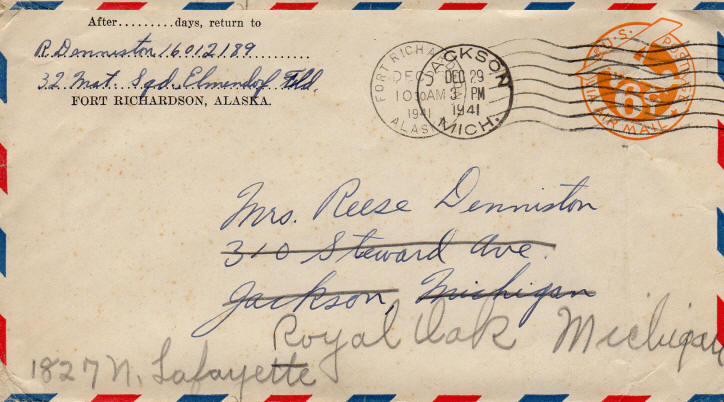 After.........days, return to
R. Denniston 16012189
32 Mat. Sqd. Elmendof Fld.
FORT RICHARDSON, ALASKA.
FORT RICHARDSON
DEC
10 AM
1941
ALASKA
JACKSON
DEC 29
3 PM
1941
MICH.
U.S. POSTAGE
6¢
VIA AIR MAIL
Mrs. Reese Denniston
310 Steward Ave.
Jackson, Michigan
Royal Oak Michigan
1827 N. Lafayette